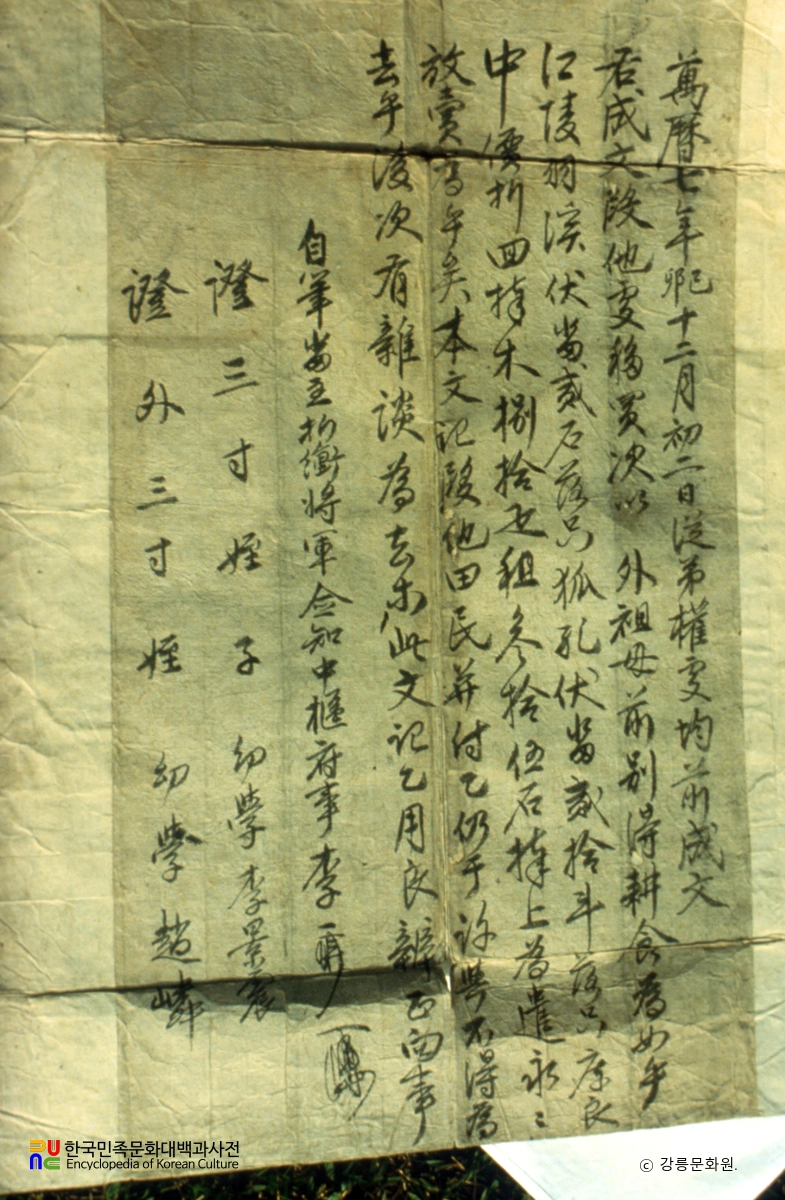 萬曆七年己卯十二月初二日從弟權處均前成文
右成文段他處移買次以 外祖母前別得耕食爲如乎
江陵羽溪伏畓貳石落只狐孔伏畓貳拾斗落只庫良
中價折四揀木捌拾疋租參拾伍石捧上爲遣永永
放賣爲乎矣本文記段他田民幷付乙仍于許與不得爲
去乎後次有雜談爲去等此文記乙用良辨正向事
自筆畓主折衝將軍僉知中樞府事李
證三寸姪子幼學李景震
證外三寸姪幼學趙嶙
한국민족문화대백과사전
Encyclopedia of Korean Culture
ⓒ 강릉문화원.